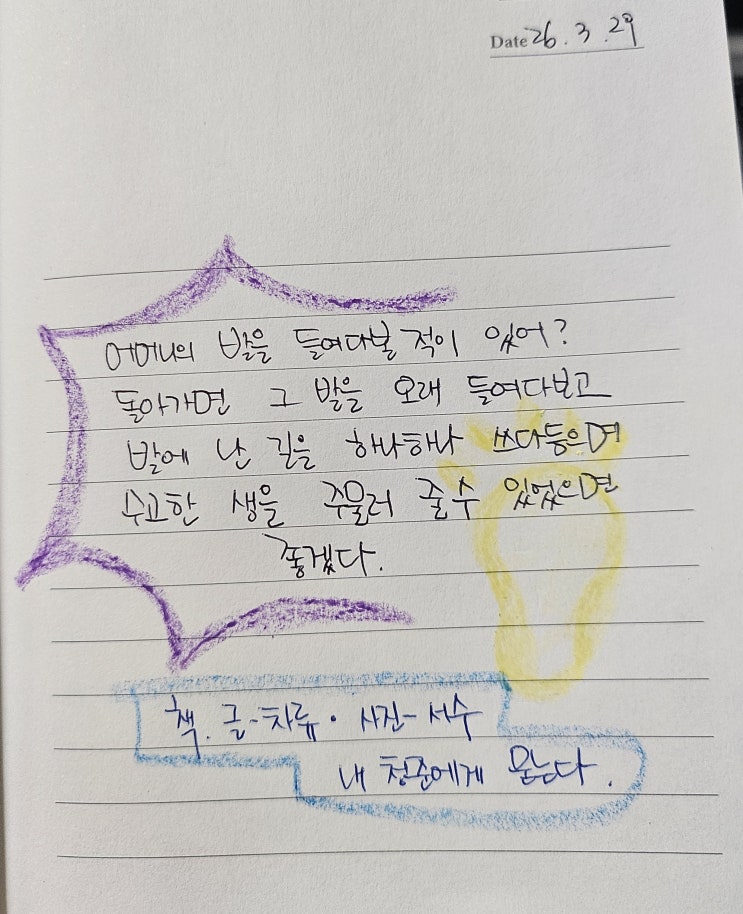 Date 26. 3. 29
어머니의 발을 들여다볼 적이 있어?
돌아가면 그 발을 오래 들여다보고
발에 난 길을 하나하나 쓰다듬으며
수고한 생을 주물러 줄 수 있었으면
좋겠다.
책. 글-차류· 사진-서수
내 청춘에게 묻는다.